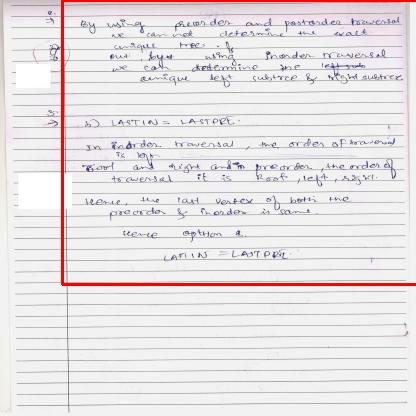 By using preorder and postorder traversal
we can not determine the exact
unique tree.
but by using inorder traversal
we can determine the
unique left subtree & right subtree
b) LASTIN = LASTPRE.
In inorder traversal, the order of traversal
is left
root and right and in preorder, the order of
traversal it is Root, left, right.
Hence, the last vertex of both the
preorder & inorder is same.
Hence option
LASTIN = LASTPRE.